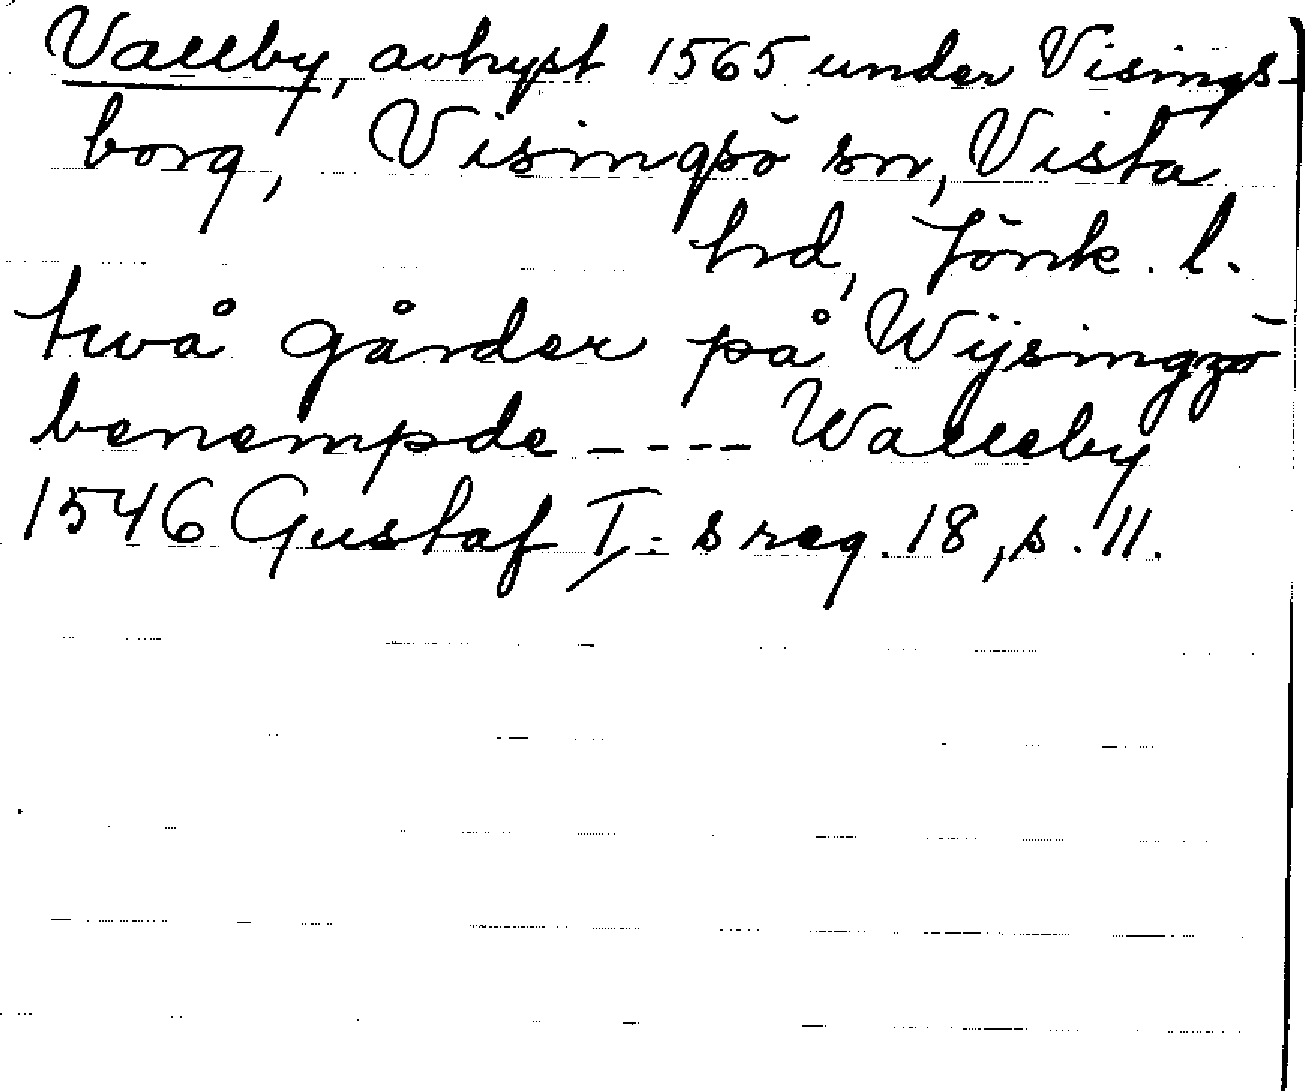 Vallby, avhyst 1565 under Visings-
borg, Visingsö sn, Vista
hd, Jönk. l.
twå gårder på Wijsingzö
benempde ---- Walleby
1546 Gustaf I:s reg. 18, s. 11.